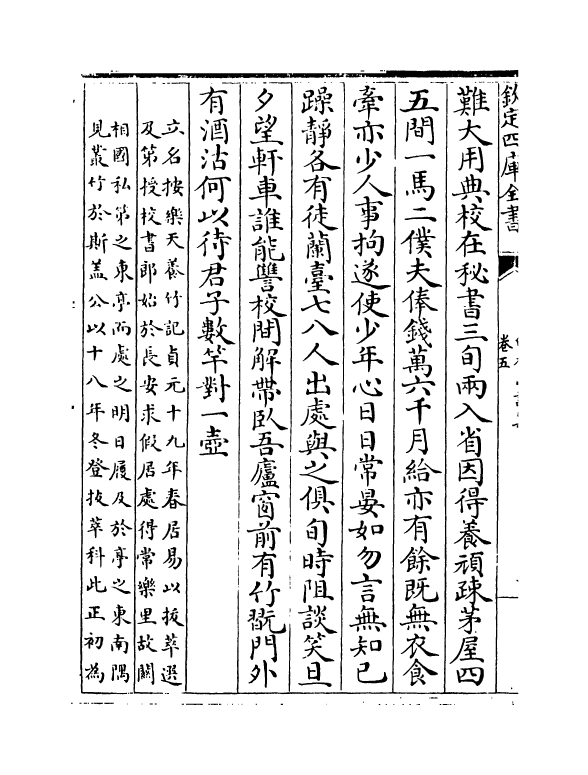 欽定四庫全書
卷五
難大用典校在秘書三旬兩入省因得養頑疎茅屋四
五間一馬二僕夫俸錢萬六千月給亦有餘既無衣食
牽亦少人事拘遂使少年心日日常晏如勿言無知已
躁靜各有徒蘭臺七八人出處與之俱旬時阻談笑旦
夕望軒車誰能讐校間解帶臥吾廬窗前有竹翫門外
有酒沽何以待君子數竿對一壺
立名按樂天養竹記貞元十九年春居易以拔萃選
及第授校書郎始於長安求假居處得常樂里故關
相國私第之東亭而處之明日履及於亭之東南隅
見叢竹於斯蓋公以十八年冬登拔萃科此正初為